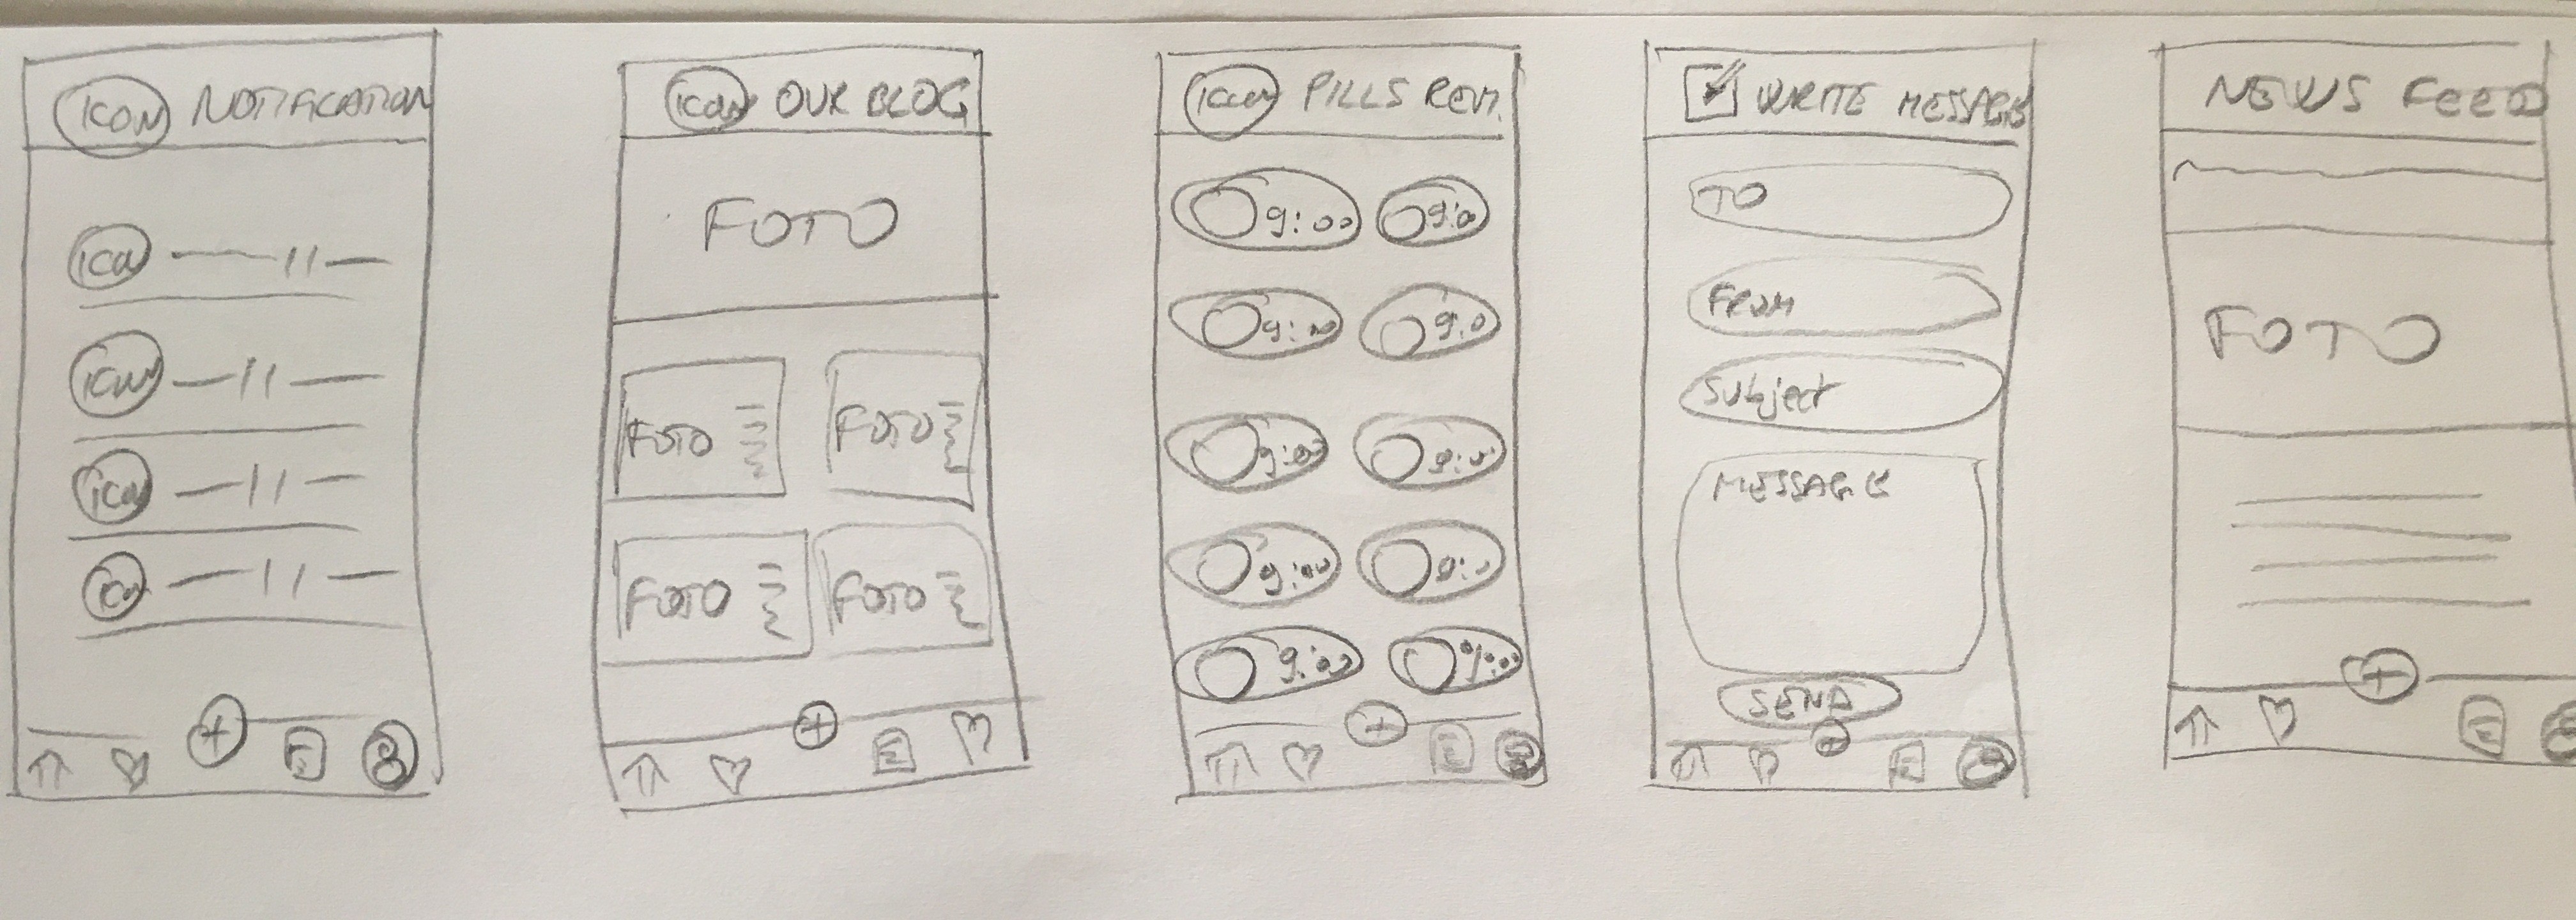 ICON NOTIFICATION
ICON
ICON
ICON
ICON
ICON OUR BLOG
FOTO
FOTO
FOTO
FOTO
FOTO
ICON PILLS REM.
9:00 9:0
9:00 9:0
9:00
9:00
9:00 9:00
WRITE MESSAGE
TO
FROM
Subject
MESSAGE
SEND
NEWS FEED
FOTO